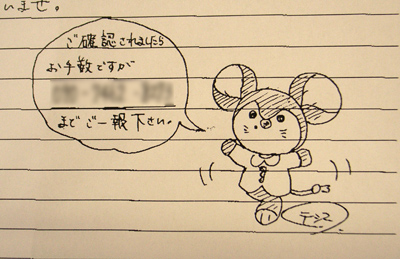 いませ。
ご確認されましたら
お手数ですが
までご一報下さい。
テシマ